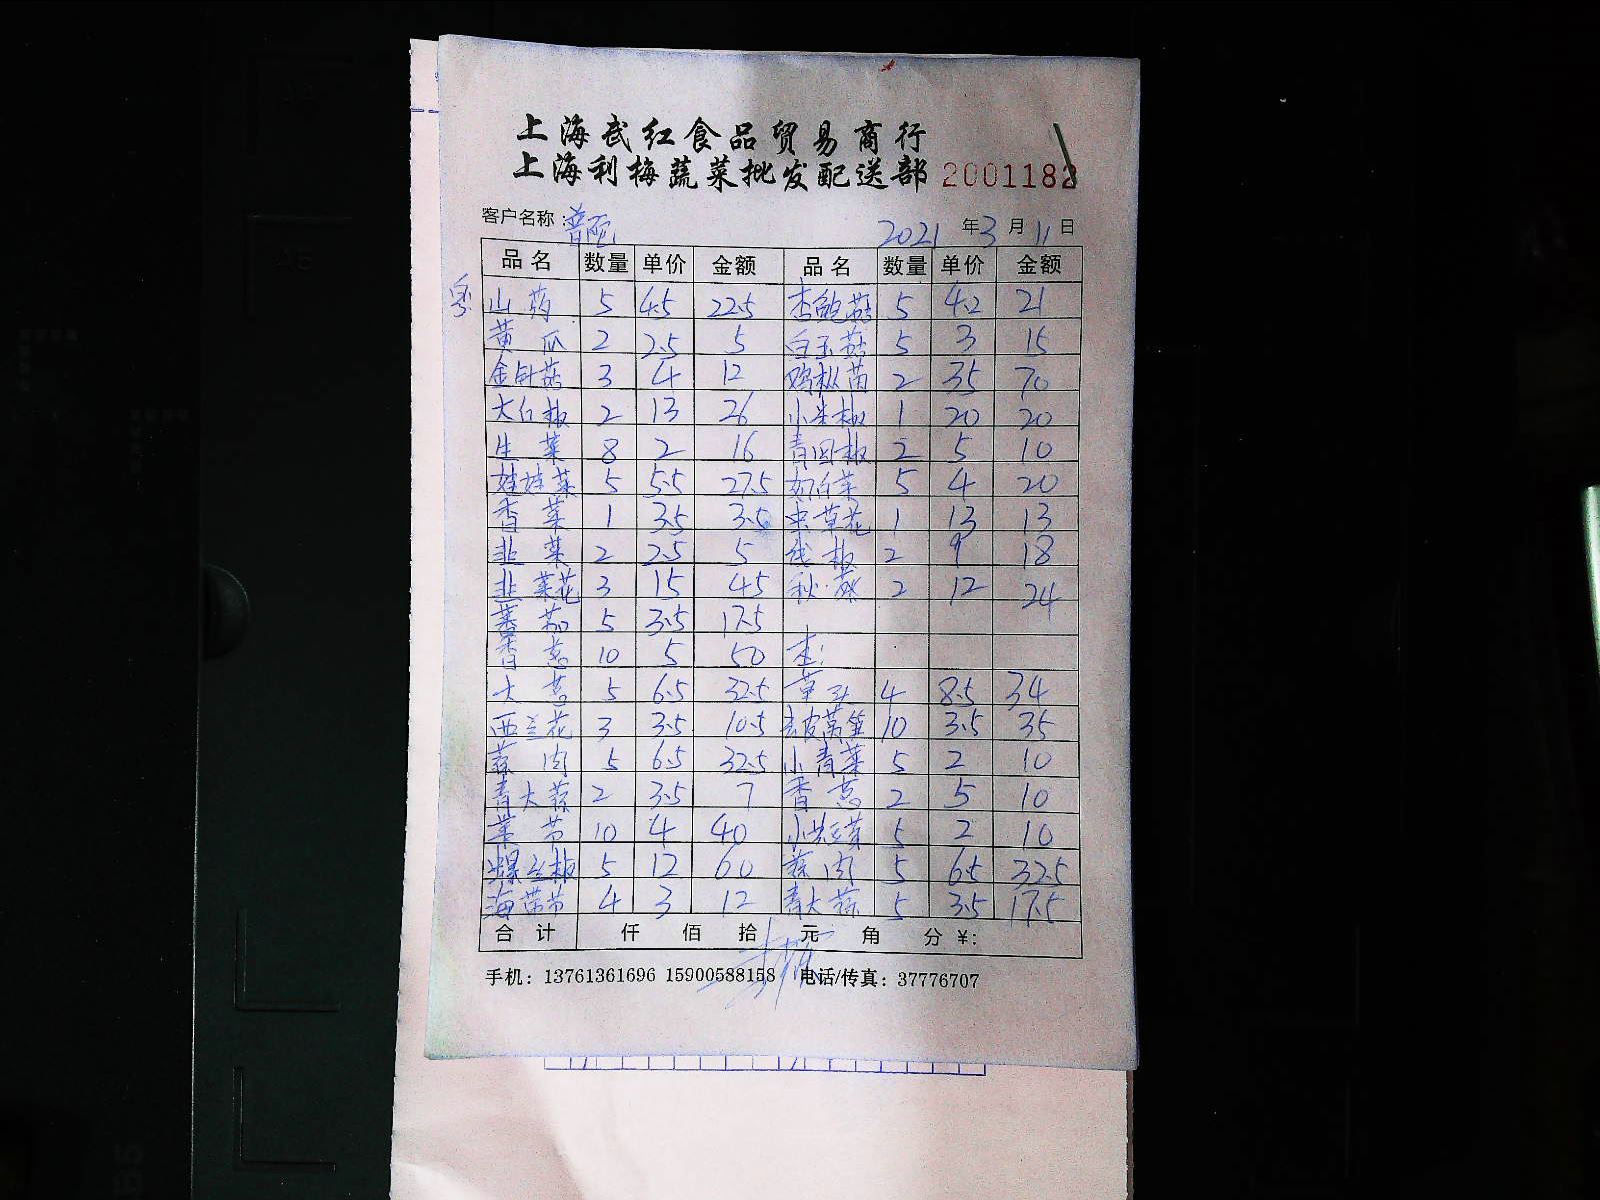 上海武红食品贸易商行
上海利梅蔬菜批发配送部 2001182
客户名称: 2021 年 3 月 11 日
品名 数量 单价 金额 品名 数量 单价 金额
山药 5 4.5 22.5 杏鲍菇 5 4.2 21
黄瓜 2 2.5 5 白玉菇 5 3 15
金针菇 3 4 12 鸡枞菌 2 35 70
大红椒 2 13 26 小米椒 1 20 20
生菜 8 2 16 青圆椒 2 5 10
娃娃菜 5 5.5 27.5 奶白菜 5 4 20
香菜 1 3.5 3.5 虫草花 1 13 13
韭菜 2 2.5 5 线椒 2 9 18
韭菜花 3 15 45 秋葵 2 12 24
蕃茄 5 3.5 17.5
香葱 10 5 50
大葱 5 6.5 32.5 草头 4 8.5 34
西兰花 3 3.5 10.5 去皮莴笋 10 3.5 35
蒜肉 5 6.5 32.5 小青菜 5 2 10
青大蒜 2 3.5 7 香葱 2 5 10
10 4 40 小黄豆芽 5 2 10
螺丝椒 5 12 60 蒜肉 5 6.5 32.5
海带节 4 3 12 青大蒜 5 3.5 17.5
合计 仟 佰 拾 元 角 分 ¥:
手机: 13761361696 15900588158 电话/传真: 37776707